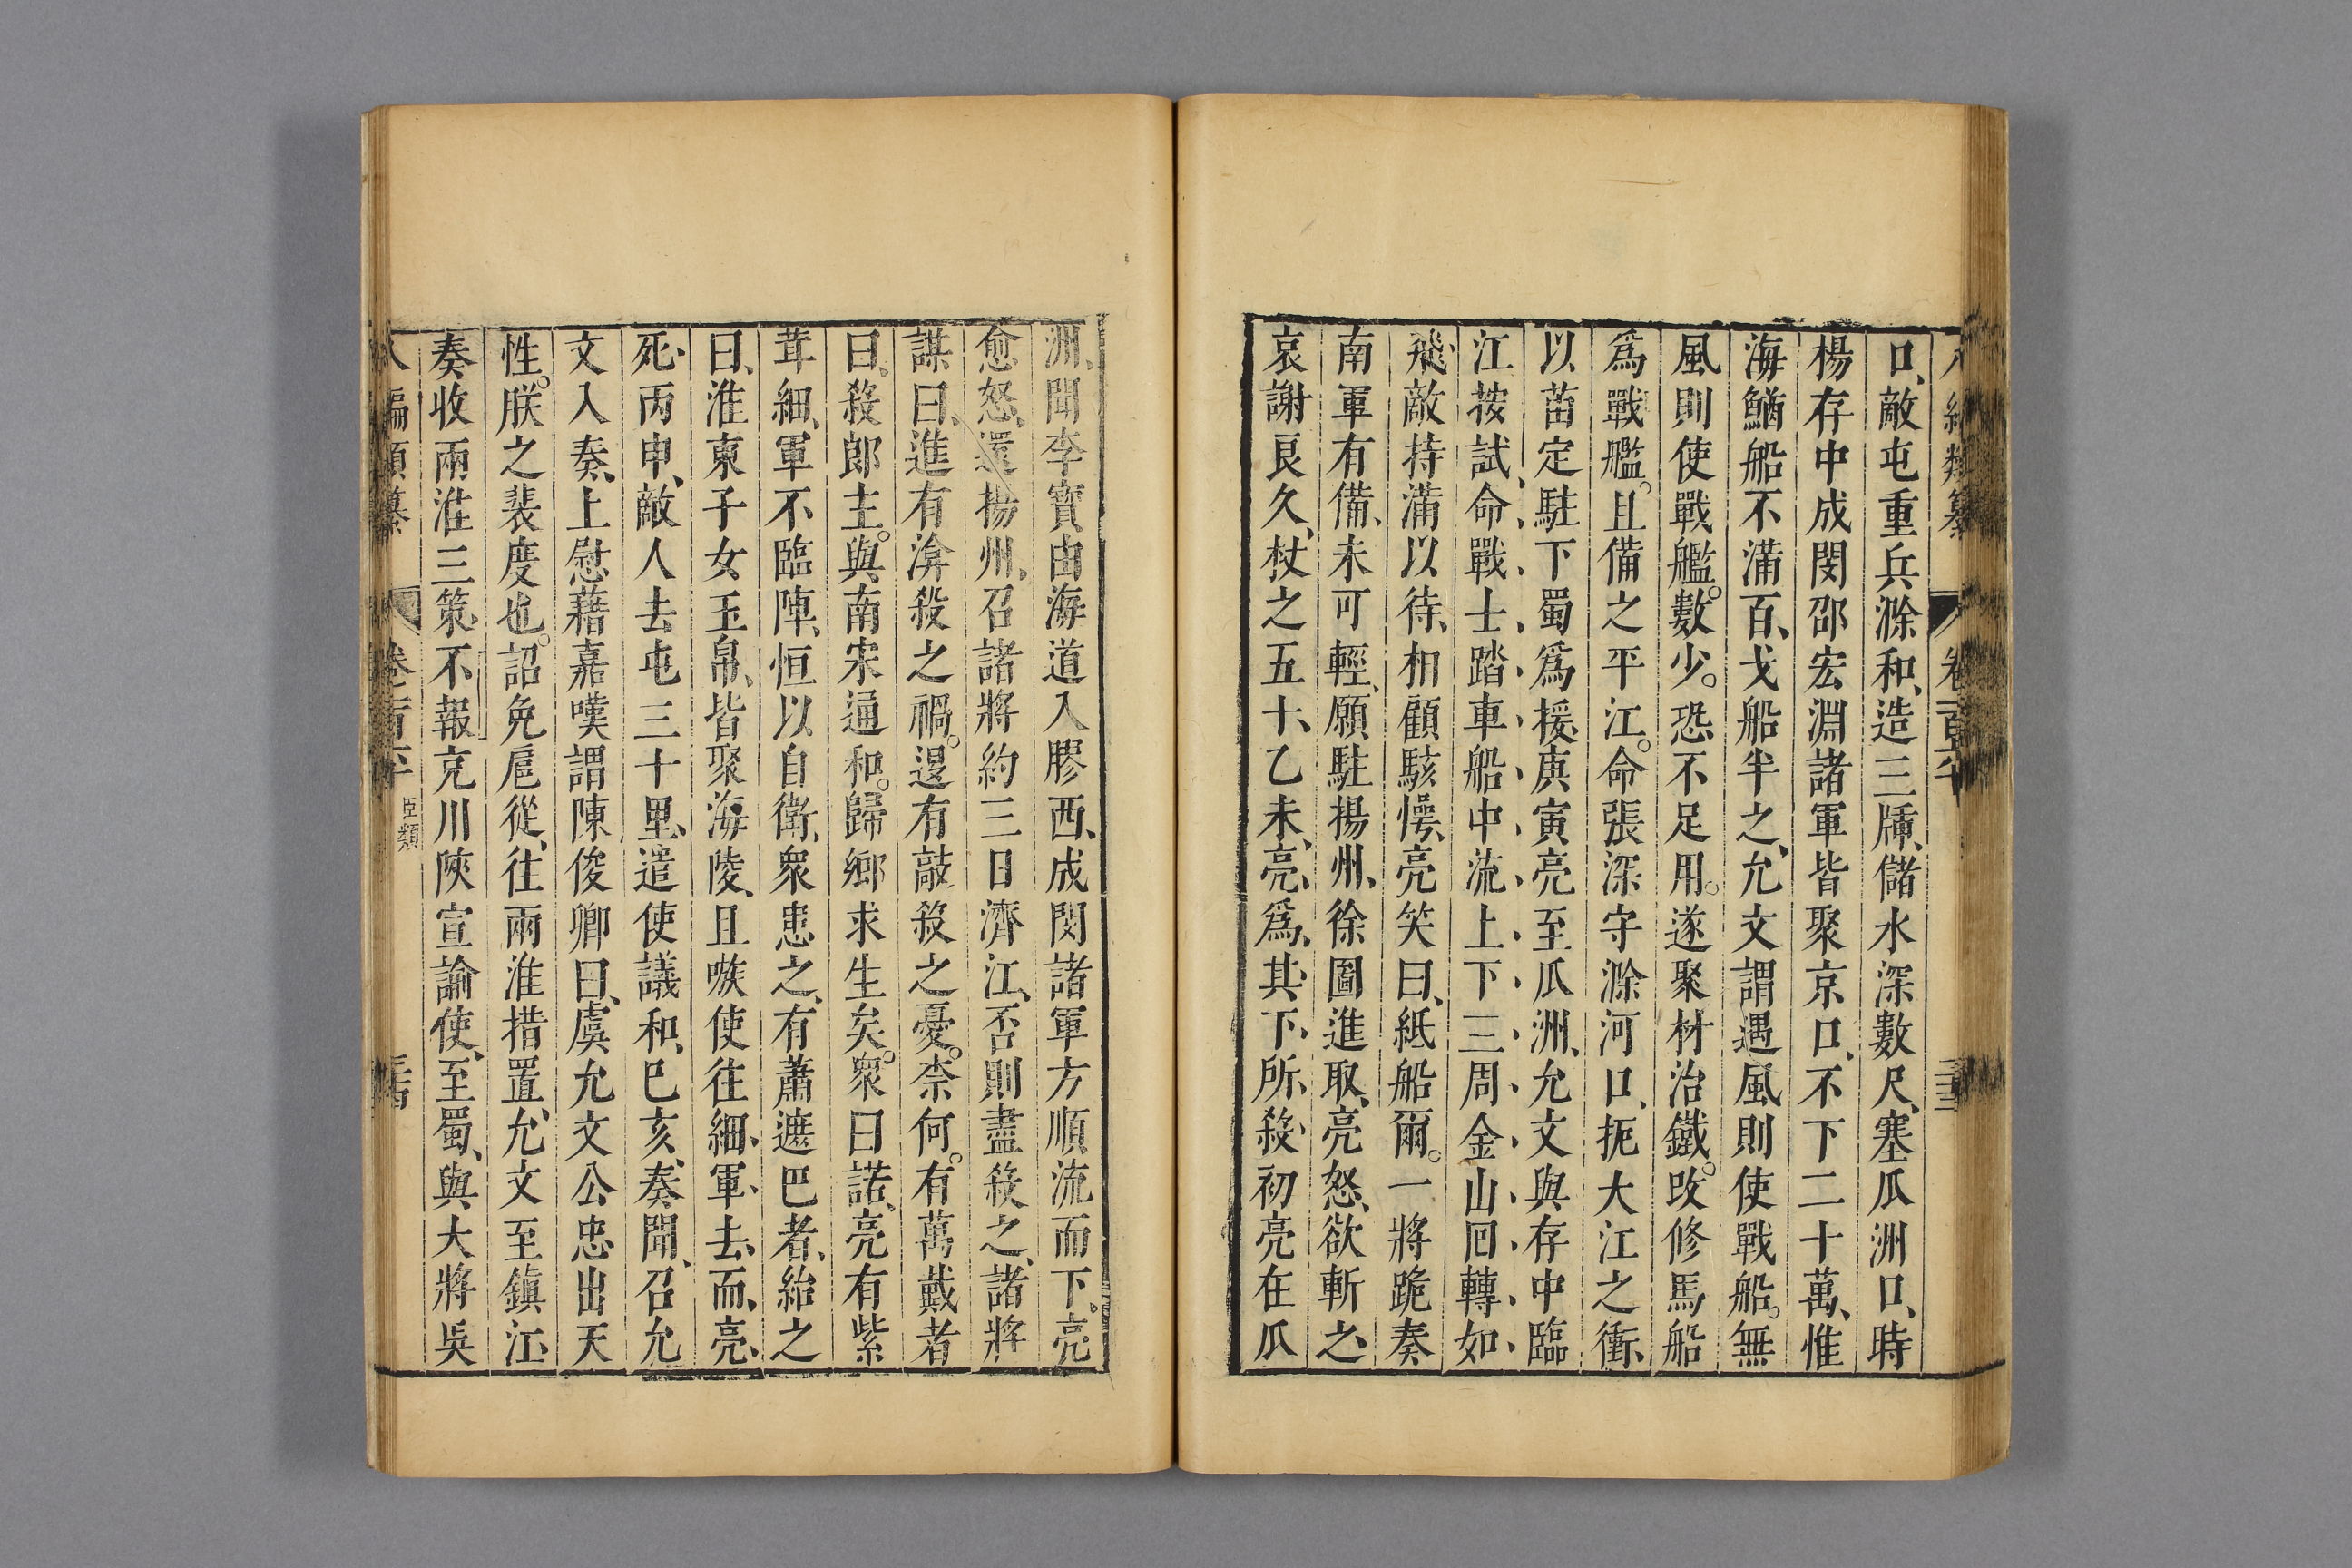 八編類纂 卷一百六
口、敵屯重兵滁和、造三牐、儲水深數尺、塞瓜洲口、時
楊存中成閔邵宏淵諸軍皆聚京口、不下二十萬、惟
海鰌船不滿百、戈船半之、允文謂遇風則使戰船。無
風則使戰艦。數少。恐不足用。遂聚材治鐵。改修馬船
爲戰艦。且備之平江。命張深守滁河口、扼大江之衝、
以苗定駐下蜀爲援、庚寅亮至瓜洲、允文與存中臨
江按試、命戰士踏車船中流上下三周金山回轉如
飛、敵持滿以待、相顧駭愕、亮笑曰、紙船爾。一將跪奏
南軍有備、未可輕、願駐揚州、徐圖進取、亮怒、欲斬之、
哀謝良久、杖之五十、乙未、亮、爲其下所殺初亮在瓜
洲、聞李寶由海道入膠西、成閔諸軍方順流而下。亮
愈怒、還揚州、召諸將約三日濟江、否則盡殺之、諸將
謀曰、進有渰殺之禍。退有敲殺之憂。柰何。有萬戴者
曰、殺郎主。與南宋通和。歸鄉求生矣。衆曰諾、亮有紫
茸細軍不臨陣、恒以自衛、衆患之、有蕭遮巴者、紿之
曰、淮東子女玉帛、皆聚海陵、且嗾使往細軍去、而亮
死、丙申、敵人去屯三十里、遣使議和、巳亥、奏聞、召允
文入奏、上慰藉嘉嘆謂陳俊卿曰、虞允文公忠出天
性。朕之裴度也。詔免扈從、往兩淮措置、允文至鎮江、
奏收兩淮三策、不報、克川陜宣諭使、至蜀、與大將吳
八編類纂 臣類